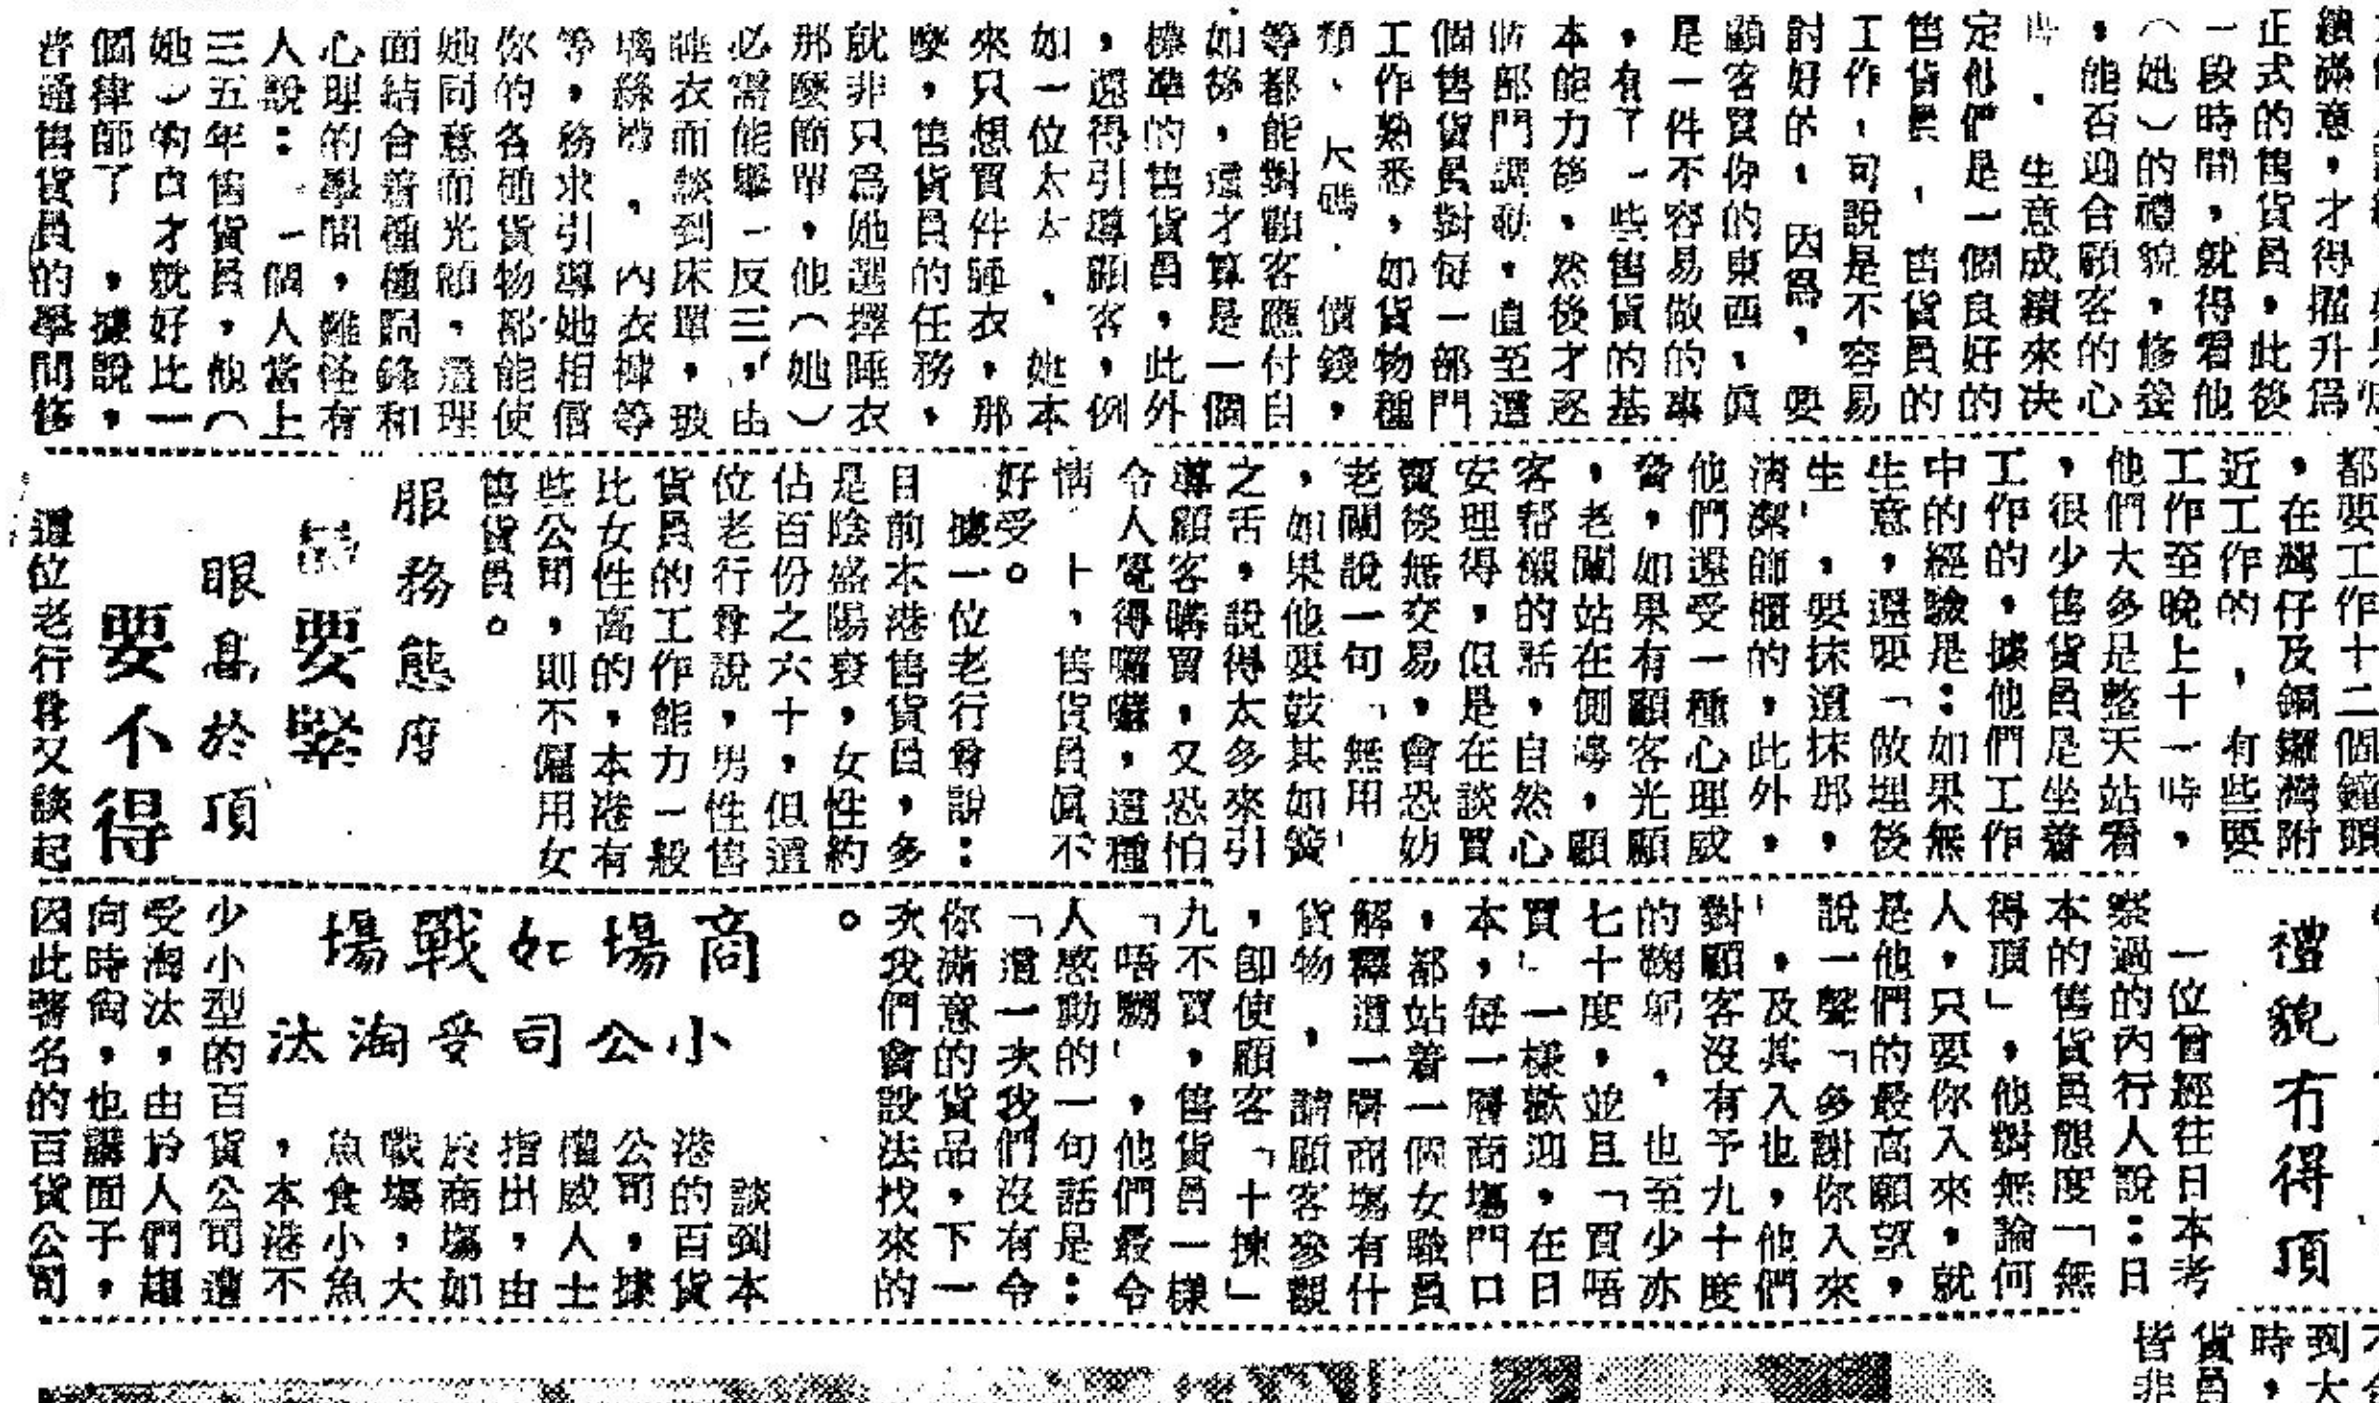 績滿意，才得擢升爲
正式的售貨員，此後
一段時間，就得看他
（她）的禮貌，修養
，能否迎合顧客的心
生意成績來決
定他們是一個良好的
售貨員，售貨員的
工作，可說是不容易
討好的，因爲，要
顧客買你的東西，眞
是一件不容易做的事
，有了一些售貨的基
本能力後，然後才逐
部門調動，直至這
個售貨員對每一部門
工作熟悉，如貨物種
類、尺碼、價錢，
等都能對顧客應付自
如後，這才算是一個
標準的售貨員，此外
，還得引導顧客，例
如一位太太，她本
來只想買件睡衣，那
麼，售貨員的任務，
就非只爲她選擇睡衣
那麼簡單，他（她）
必需能舉一反三，由
睡衣而談到床單，玻
璃絲襪，內衣褲等
等，務求引導她相信
你的各種貨物都能使
她同意而光顧，這理
面結合着種種同鋒和
心理的學問，難怪有
人說：一個人當上
三五年售貨員，他（
她）的口才就好比一
個律師了，據說，
普通售貨員的學問修
都要工作十二個鐘頭
，在灣仔及銅鑼灣附
近工作的，有些要
工作至晚上十一時，
他們大多是整天站着
，很少售貨員是坐着
工作的，據他們工作
中的經驗是：如果無
生意，還要「做埋後
生」，要抹這抹那，
清潔飾櫃的，此外，
他們還受一種心理威
脅，如果有顧客光顧
，老闆站在側邊，顧
客帮襯的話，自然心
安理得，但是在談買
賣後無交易，會恐妨
老闆說一句「無用」
，如果他要鼓其如簧
之舌，說得太多來引
導顧客購買，又恐怕
令人覺得囉囌，這種
情上，售貨員眞不
好受。
據一位老行尊說：
目前本港售貨員，多
是陰盛陽衰，女性約
佔百份之六十，但這
位老行尊說，男性售
貨員的工作能力一般
比女性高的，本港有
些公司，則不僱用女
售貨員。
服務態度
最要緊
眼高於頂
要不得
這位老行尊又談起
禮貌冇得頂
一位曾經往日本考
察過的內行人說：日
本的售貨員態度「無
得頂」，他對無論何
人，只要你入來，就
是他們的最高願望，
說一聲「多謝你入來
」，及其入也，他們
對顧客沒有予九十度
的鞠躬，也至少亦
七十度，並且「買唔
買」一樣歡迎，在日
本，每一層商塲門口
，都站着一個女職員
解釋這一層商塲有什
貨物，請顧客參觀
，卽使顧客「十揀」
九不買，售貨員一樣
「唔嬲」，他們最令
人感動的一句話是：
「這一次我們沒有令
你滿意的貨品，下一
次我們會設法找來的
。
商場如戰場
小公司受淘汰
談到本
港的百貨
公司，據
權威人士
指出，由
於商塲如
戰塲，大
魚食小魚
，本港不
少小型的百貨公司遭
受淘汰，由於人們趨
向時尙，也講面子，
因此著名的百貨公司
到大
時，
貨員
皆非